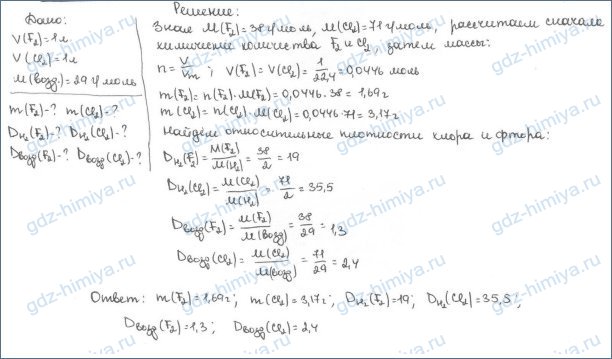 Дано:
V(F₂)=1л
V(Cl₂)=1л
M(возд.)=29 г/моль
m(F₂)-? m(Cl₂)-?
D_H₂(F₂)-? D_H₂(Cl₂)-?
D_возд(F₂)-? D_возд(Cl₂)-?
Решение:
Зная M(F₂)=38 г/моль, M(Cl₂)=71 г/моль, рассчитаем сначала
химические количества F₂ и Cl₂, затем массы:
n = V/Vm ; V(F₂)=V(Cl₂)= 1/22,4 =0,0446 моль
m(F₂)=n(F₂)·M(F₂)=0,0446·38=1,69г
m(Cl₂)=n(Cl₂)·M(Cl₂)=0,0446·71=3,17г
Найдём относительные плотности хлора и фтора:
D_H₂(F₂)= M(F₂)/M(H₂) = 38/2 = 19
D_H₂(Cl₂)= M(Cl₂)/M(H₂) = 71/2 = 35,5
D_возд(F₂)= M(F₂)/M(возд) = 38/29 = 1,3
D_возд(Cl₂)= M(Cl₂)/M(возд) = 71/29 = 2,4
Ответ: m(F₂)=1,69г; m(Cl₂)=3,17г; D_H₂(F₂)=19; D_H₂(Cl₂)=35,5;
D_возд(F₂)=1,3; D_возд(Cl₂)=2,4
gdz-himiya.ru